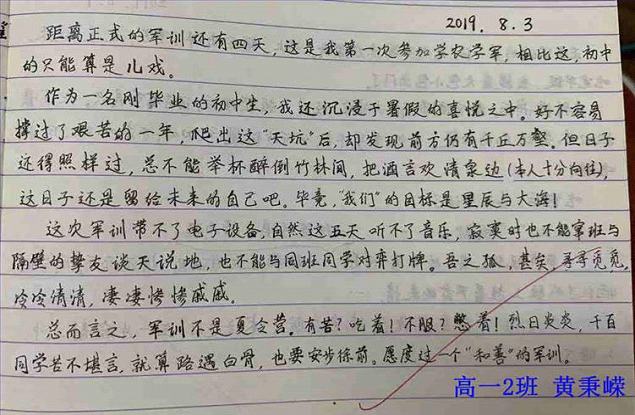 2019. 8. 3
距离正式的军训还有四天，这是我第一次参加学农学军，相比这，初中
的只能算是儿戏。
作为一名刚毕业的初中生，我还沉浸于暑假的喜悦之中。好不容易
撑过了艰苦的一年，爬出这“天坑”后，却发现前方仍有千丘万壑。但日子
还得照样过，总不能举杯醉倒竹林间，把酒言欢清泉边（本人十分向往），
这日子还是留给未来的自己吧。毕竟，“我们”的目标是星辰与大海！
这次军训带不了电子设备，自然这五天听不了音乐，寂寞时也不能窜班与
隔壁的挚友谈天说地，也不能与同班同学对弈打牌。吾之孤，甚矣，寻寻觅觅，
冷冷清清，凄凄惨惨戚戚。
总而言之，军训不是夏令营。有苦？吃着！不服？憋着！烈日炎炎，千百
同学苦不堪言，就算路遇白骨，也要安步徐前。愿度过一个“和善”的军训。
高一2班 黄秉嵘